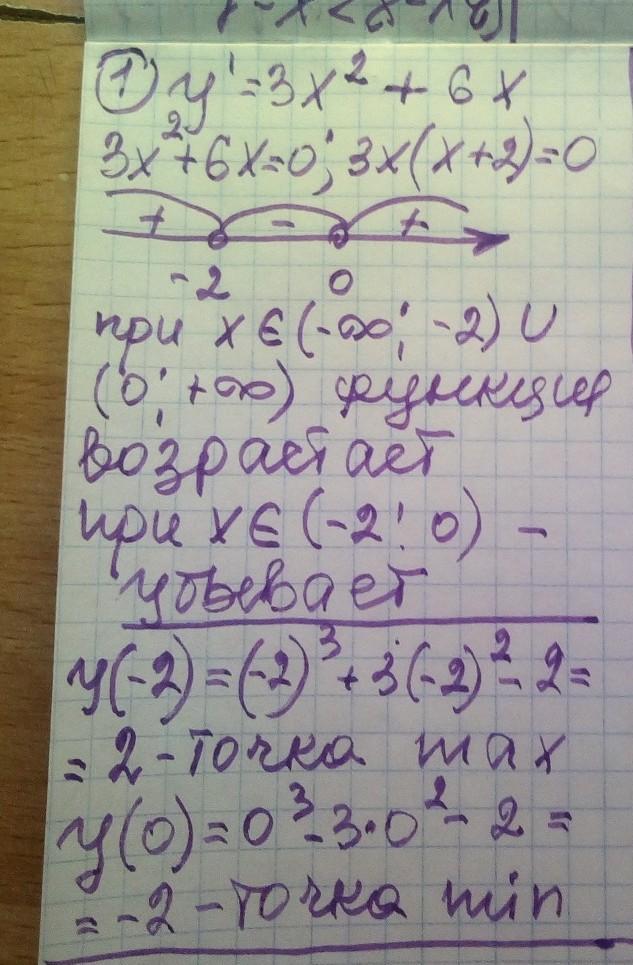 ① y' = 3x² + 6x
3x² + 6x = 0; 3x(x+2) = 0
+ - +
-2 0
при x ∈ (-∞; -2) ∪
(0; +∞) функция
возрастает
при x ∈ (-2; 0) -
убывает
y(-2) = (-2)³ + 3(-2)² - 2 =
= 2 - точка max
y(0) = 0³ - 3·0² - 2 =
= -2 - точка min